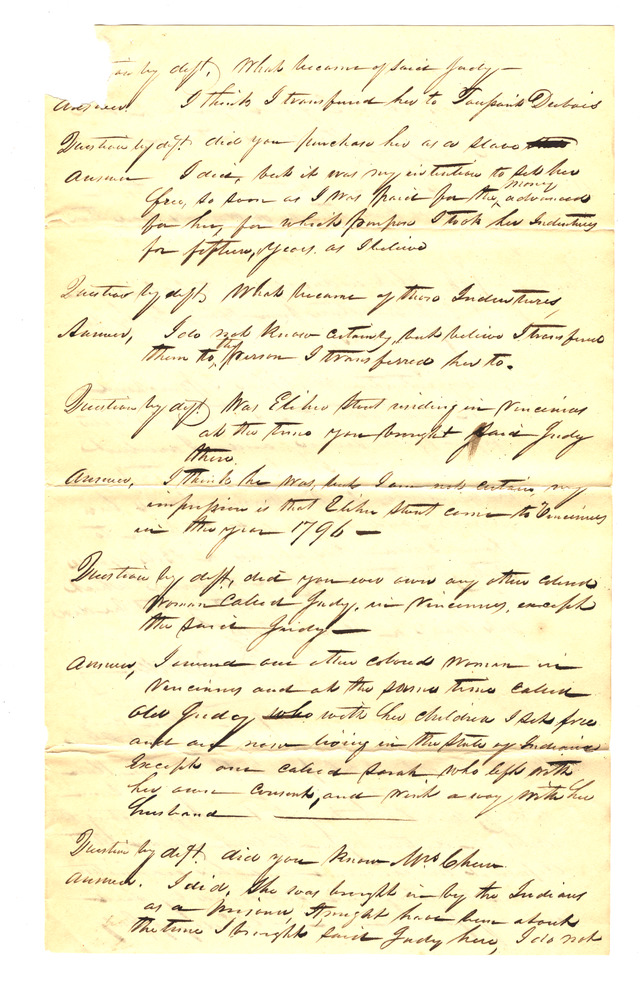 by deft, What became of said Judy—
Answer. I think I transfered her to Toupaint Dubois
Question by deft. did you purchase her as a slave
Answer I did, but it was my intention to set her
free, so soon as I was paid for the money advanced
for her, for which purpose I took her Indentures
for fifteen, years. as I believe
Question by deft, What became of those Indentures,
Answer, I do not know certainly, but believe I transfered
them to the person I transferred her to.
Question by deft, Was Elihu Stout residing in Vincennes
at the time you brought said Judy
there
Answer, I think he was, but I am not certain, my
impression is that Elihu Stout came to Vincennes
in the year 1796 —
Question by deft, did you ever own any other colored
Woman called Judy, in Vincennes, except
the said Judy—
Answer, I owned one other colored Woman in
Vincennes and at the same time called
Old Judy who with her children I set free
and are now living in the State of Indiana
Except one called Sarah who left with
her own consent, and went away with her
husband
Question by deft, did you know Mrs
Answer. I did, She was brought in by the Indians
as a Prisoner, it might have been about
the time I brought said Judy here, I do not